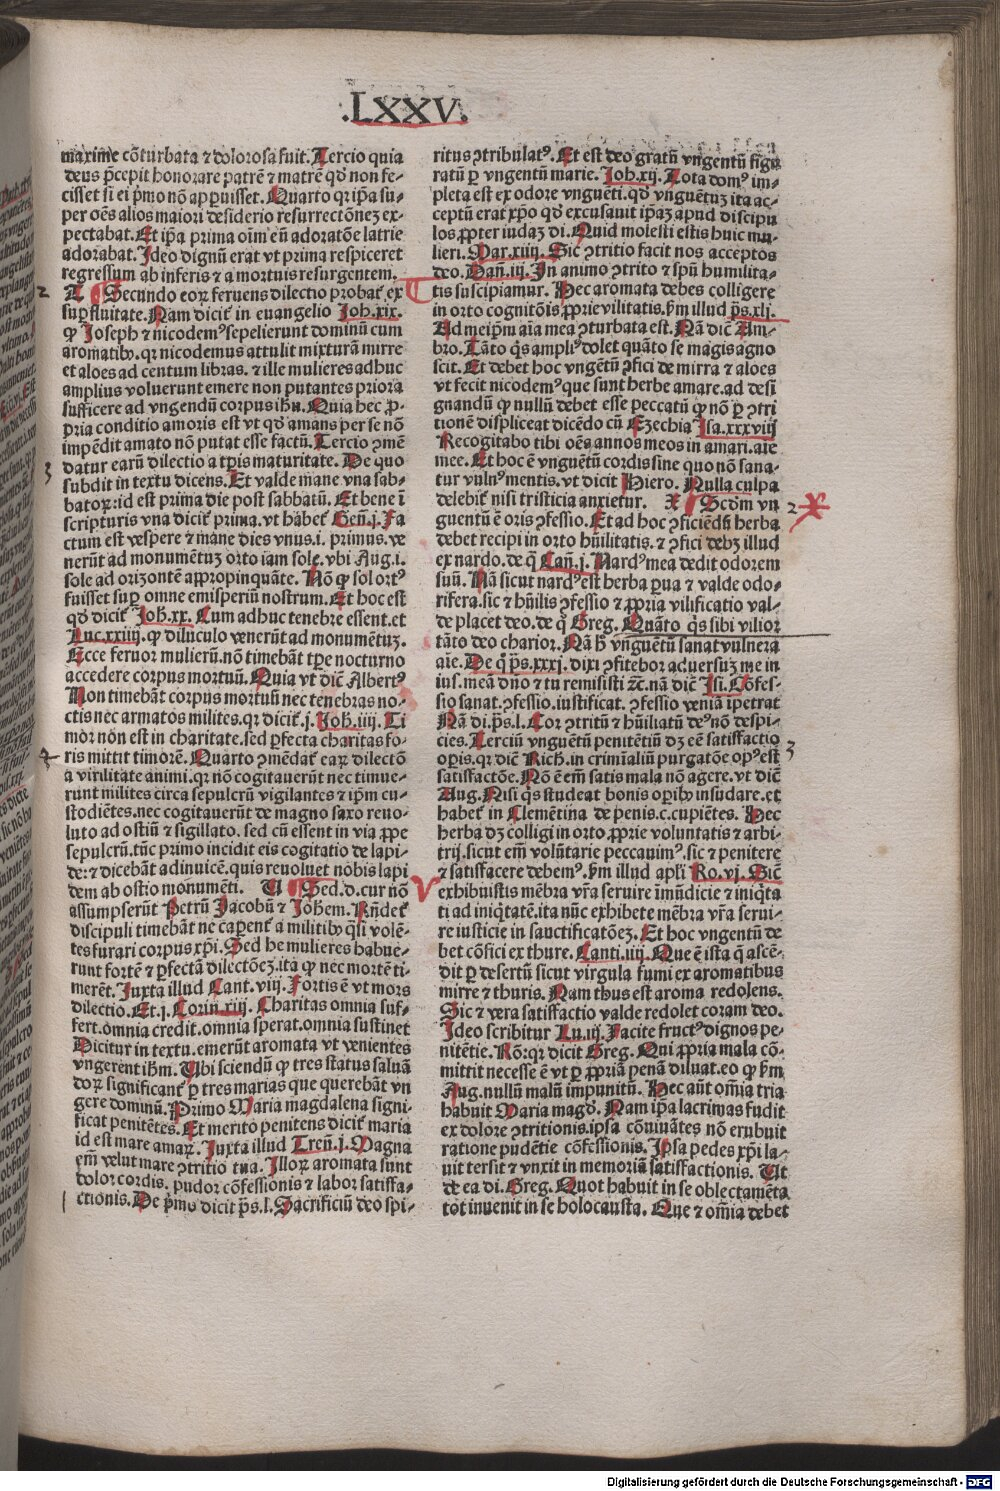 .LXXV.
maxime cōturbata ⁊ dolorosa fuit. Tercio quia
deus p̄cepit honorare patrē ⁊ matrē qd̛ non fe⸗
cisset si ei p̄mo nō apparuisset. Quarto qr ip̄a su⸗
per oēs alios maiori desiderio resurrectōnez ex⸗
pectabat. Et ip̄a prima oīm eū adoratōe latrie
adorabat. Ideo dignū erat vt prima respiceret
regressum ab inferis ⁊ a mortuis resurgentem.
T Secundo eoꝝ feruens dilectio probat̄ ex
suꝑfluitate. Nam dicit̄ in euangelio Joh.xix.
ꝙ Joseph ⁊ nicodemꝰ sepelierunt dominū cum
aromatibꝫ. qr nicodemus attulit mixturā mirre
et aloes ad centum libras. ⁊ ille mulieres adhuc
amplius voluerunt emere non putantes priora
sufficere ad vngendū corpus ihū. Quia hec ꝓ⸗
pria conditio amoris est vt qd̛ amans per se nō
impēdit amato nō putat esse factū. Tercio ꝯmē
datur earū dilectio a tꝑis maturitate. De quo
subdit in textu dicens. Et valde mane vna sab⸗
batoꝝ: id est prima die post sabbatū. Et bene ī
scripturis vna dicit̄ prima. vt habet̄ Gen̄.j. Fa
ctum est vespere ⁊ mane dies vnus. i. primus. ve
nerūt ad monumētuz orto iam sole. vbi Aug. i.
sole ad orizontē appropinquāte. Nō ꝙ sol ortꝰ
fuisset suꝑ omne emisperiū nostrum. Et hoc est
qd̛ dicit̄ Joh.xx. Cum adhuc tenebre essent. et
Luc.xxiiij. ꝙ diluculo venerūt ad monumētuz.
Ecce feruor mulierū. nō timebāt tꝑe nocturno
accedere corpus mortuū. Quia vt dic̄ Albertꝰ
Non timebāt corpus mortuū nec tenebras no⸗
ctis nec armatos milites. qr dicit̄ .j. Joh.iiij. Ti
mor non est in charitate. sed ꝑfecta charitas fo⸗
ris mittit timorē. Quarto ꝯmēdat̄ eaꝝ dilectō
a virilitate animi. qr nō cogitauerūt nec timue⸗
runt milites circa sepulcrū vigilantes ⁊ ip̄m cu⸗
stodiētes. nec cogitauerūt de magno saxo reuo⸗
luto ad ostiū ⁊ sigillato. sed cū essent in via ꝓpe
sepulcrū. tūc primo incidit eis cogitatio de lapi⸗
de: ⁊ dicebāt adinuicē. quis reuoluet nobis lapi
dem ab ostio monumēti. U Sed. d. cur nō
assumpserūt Petrū Jacobū ⁊ Johēm. Rn̄det̄
discipuli timebāt ne caꝑent̄ a militibꝫ qsi volē⸗
tes furari corpus xp̄i. Sed he mulieres habue⸗
runt fortē ⁊ ꝑfectā dilectōez. ita ꝙ nec mortē ti⸗
merēt. Juxta illud Cant.viij. Fortis ē vt mors
dilectio. Et .j. Corin.xiij. Charitas omnia suf⸗
fert. omnia credit. omnia sperat. omnia sustinet
Dicitur in textu. emerūt aromata vt venientes
vngerent ihm̄. Ubi sciendū ꝙ tres status saluā
doꝝ significant̄ ꝑ tres marias que querebāt vn
gere dominū. Primo Maria magdalena signi⸗
ficat penitētes. Et merito penitens dicit̄ maria
id est mare amaꝝ. Juxta illud Tren̄.j. Magna
em̄ velut mare ꝯtritio tua. Illoꝝ aromata sunt
dolor cordis. pudor cōfessionis ⁊ labor satisfa⸗
ctionis. De p̄mo dicit p̄s.l. Sacrificiū deo spi⸗
ritus ꝯtribulatꝰ. Et est deo gratū vngentū figu
ratū ꝑ vngentum marie. Joh.xij. Tota domꝰ im⸗
pleta est ex odore vnguēti. qd̛ vnguētuz ita ac⸗
ceptū erat xp̄o qd̛ excusauit ip̄az apud discipu
los ꝓpter iudaz di. Quid molesti estis huic mu⸗
lieri. Mar.xiiij. Sic ꝯtritio facit nos acceptos
deo. Dan̄.iij. In animo ꝯtrito ⁊ spū humilita⸗
tis suscipiamur. Hec aromata debes colligere
in orto cognitōis ꝓprie vilitatis. ẜm illud p̄s.xlj.
Ad meip̄m aīa mea ꝯturbata est. Nā dic̄ Am⸗
bro. Tāto q̄s ampliꝰ dolet quāto se magis agno
scit. Et debet hoc vngētū ꝯfici de mirra ⁊ aloes
vt fecit nicodemꝰ que sunt herbe amare. ad desi
gnandū ꝙ nullū debet esse peccatū ꝙ nō ꝑ ꝯtri
tionē displiceat dicēdo cū Ezechia Isa.xxxviij
Recogitabo tibi oēs annos meos in amari. aīe
mee. Et hoc ē vnguētū cordis sine quo nō sana⸗
tur vulnꝰ mentis. vt dicit Hiero. Nulla culpa
delebit̄ nisi tristicia anxietur. X Scd̄m vn
guentū ē oris ꝯfessio. Et ad hoc ꝯficiēdū herba
debet recipi in orto hūilitatis. ⁊ ꝯfici debꝫ illud
ex nardo. de q̄ Can̄.j. Nardꝰ mea dedit odorem
suū. Nā sicut nardꝰ est herba ꝑua ⁊ valde odo⸗
rifera. sic ⁊ hūilis ꝯfessio ⁊ ꝓpria vilificatio val⸗
de placet deo. de q̄ Greg. Quāto q̄s sibi vilior
tāto deo charior. Nā h̄ vnguētū sanat vulnera
aīe. De q̄ p̄s.xxxj. dixi ꝯfitebor aduersuz me in
ius. meā dn̄o ⁊ tu remisisti ⁊c̄. nā dic̄ Isi. Cōfes⸗
sio sanat. ꝯfessio. iustificat. ꝯfessio veniā īpetrat
Nā di. p̄s.l. Cor ꝯtritū ⁊ hūiliatū deꝰ nō despi⸗
cies. Terciū vnguētū penitētiū dꝫ eē satisfactio
oꝑis. qr dic̄ Rich. in crimīaliū purgatōe opꝰ est
satisfactōe. Nō ē em̄ satis mala nō agere. vt dic̄
Aug. Nisi q̄s studeat bonis oꝑibꝫ insudare. et
habet̄ in Clemētina de penis. c. cupiētes. Hec
herba dꝫ colligi in orto. ꝓprie voluntatis ⁊ arbi⸗
trij. sicut em̄ volūtarie peccauimꝰ. sic ⁊ penitere
⁊ satisfacere debemꝰ. ẜm illud apl̄i Ro.vj. Sic̄
exhibuistis mēbra vr̄a seruire īmūdicie ⁊ iniqta
ti ad iniqtatē. ita nūc exhibete mēbra vr̄a serui⸗
re iusticie in sanctificatōez. Et hoc vngentū de
bet cōfici ex thure. Canti.iiij. Que ē ista q̄ ascē⸗
dit ꝑ desertū sicut virgula fumi ex aromatibus
mirre ⁊ thuris. Nam thus est aroma redolens.
Sic ⁊ vera satisfactio valde redolet coram deo.
Ideo scribitur Lu.iij. Facite fructꝰ dignos pe⸗
nitētie. Rō: qr dicit Greg. Qui ꝓpria mala cō⸗
mittit necesse ē vt ꝑ ꝓpriā penā diluat. eo ꝙ ẜm
Aug. nullū malū impunitū. Hec aūt om̄ia tria
habuit Maria magd̛. Nam ip̄a lacrimas fudit
ex dolore ꝯtritionis. ipsa cōuiuātes nō erubuit
ratione pudētie cōfessionis. Ipsa pedes xp̄i la⸗
uit tersit ⁊ vnxit in memoriā satisfactionis. Ut
de ea di. Greg. Quot habuit in se oblectamēta
tot inuenit in se holocausta. Que ⁊ om̄ia debet
Digitalisierung gefördert durch die Deutsche Forschungsgemeinschaft - DFG